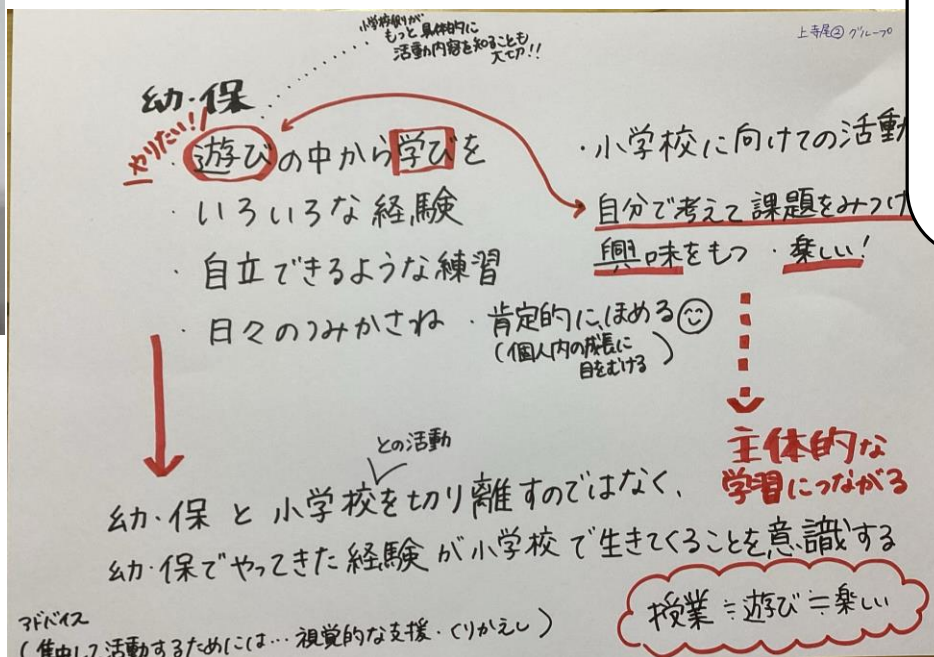 上寺尾②グループ
小学校側が
もっと具体的に
活動内容を知ることも
大切!!
幼・保
やりたい!
・遊びの中から学びを
・いろいろな経験
・自立できるような練習
・日々のつみかさね ・肯定的に、ほめる
(個人内の成長に
目をむける)
・小学校に向けての活動
自分で考えて課題をみつけ
興味をもつ ・楽しい!
主体的な
学習につながる
との活動
幼・保と小学校を切り離すのではなく、
幼・保でやってきた経験が小学校で生きてくることを意識する
授業≒遊び≒楽しい
アドバイス
(集中して活動するためには…視覚的な支援・くりかえし)